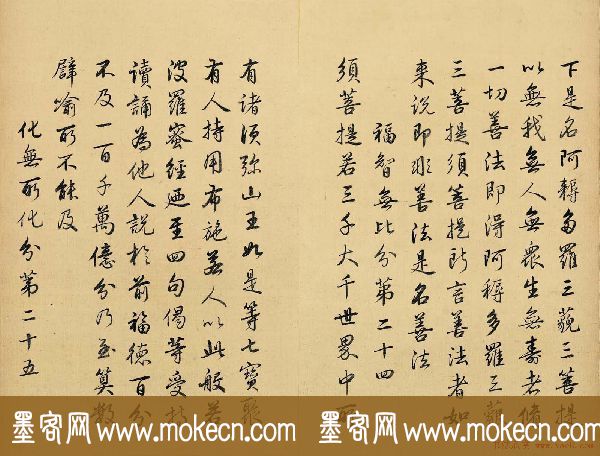 下是名阿耨多羅三藐三菩提
以無我無人無衆生無壽者修
一切善法即得阿耨多羅三藐
三菩提須菩提所言善法者如
來說即非善法是名善法
福智無比分第二十四
須菩提若三千大千世界中所
有諸須弥山王如是等七寶聚
有人持用布施若人以此般若
波羅蜜經乃至四句偈等受持
讀誦為他人說於前福德百分
不及一百千萬億分乃至算數
譬喻所不能及
化無所化分第二十五
墨客网 www.mokecn.com 墨客网 www.mokecn.com